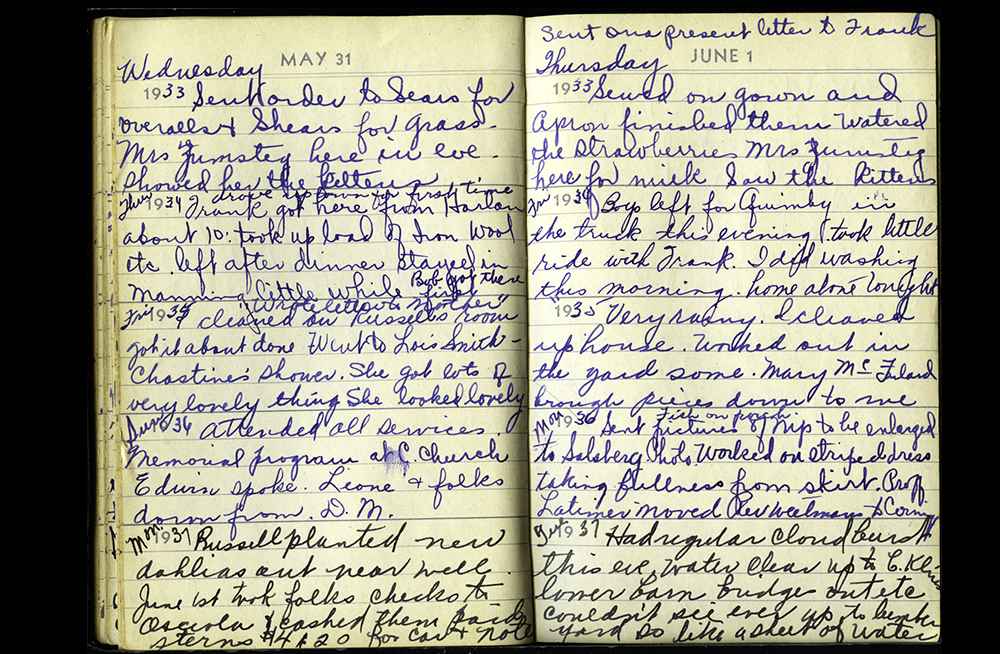 MAY 31
Wednesday
1933 Sent order to Sears for
overalls & Shears for grass.
Mrs Zumsteg here in eve.
Showed her the kittens
I drove uptown for first time
Thur 1934 Frank got here from Harlan
about 10: took up load of Iron Wool
etc. left after dinner stayed in
Manning little while Bob got there first
"Wrote letter to Mother"
Fri 1935 cleaned on Russell's room
got it about done Went to Lois Smith -
Chastine's Shower. She got lots of
very lovely thing She looked lovely
Sun 1936 Attended all services.
Memorial program at C. Church
Edwin spoke. Leone & folks
down from. D. M.
Mon. 1937 Russell planted new
dahlias out near well.
June 1st took folks checks to
Osceola & cashed them paid
sterns $4 & 20 for car & note
Sent ona present letter to Frank
JUNE 1
Thursday
1933 Sewed on gown and
Apron finished them Watered
the strawberries Mrs Zumsteg
here for milk Saw the Kittens
Fri 1934 Boys left for Quimby in
the truck this evening I took little
ride with Frank. I did washing
this morning. home alone tonight
1935 Very rainy. I cleaned
up house. Worked out in
the yard some. Mary Mc
brough pieces down to me
Fixed on porch.
Mon 1936 Sent pictures of Nip to be enlarged
to Salsberg Photo. Worked on striped dress
taking fullness from skirt. Proff.
Latimer moved Rev to
1937 Had regular Cloud burst
this eve. Water Clear up to C.
lower barn bridge out etc
couldn't see even up to lumber
yard so like a sheet of Water